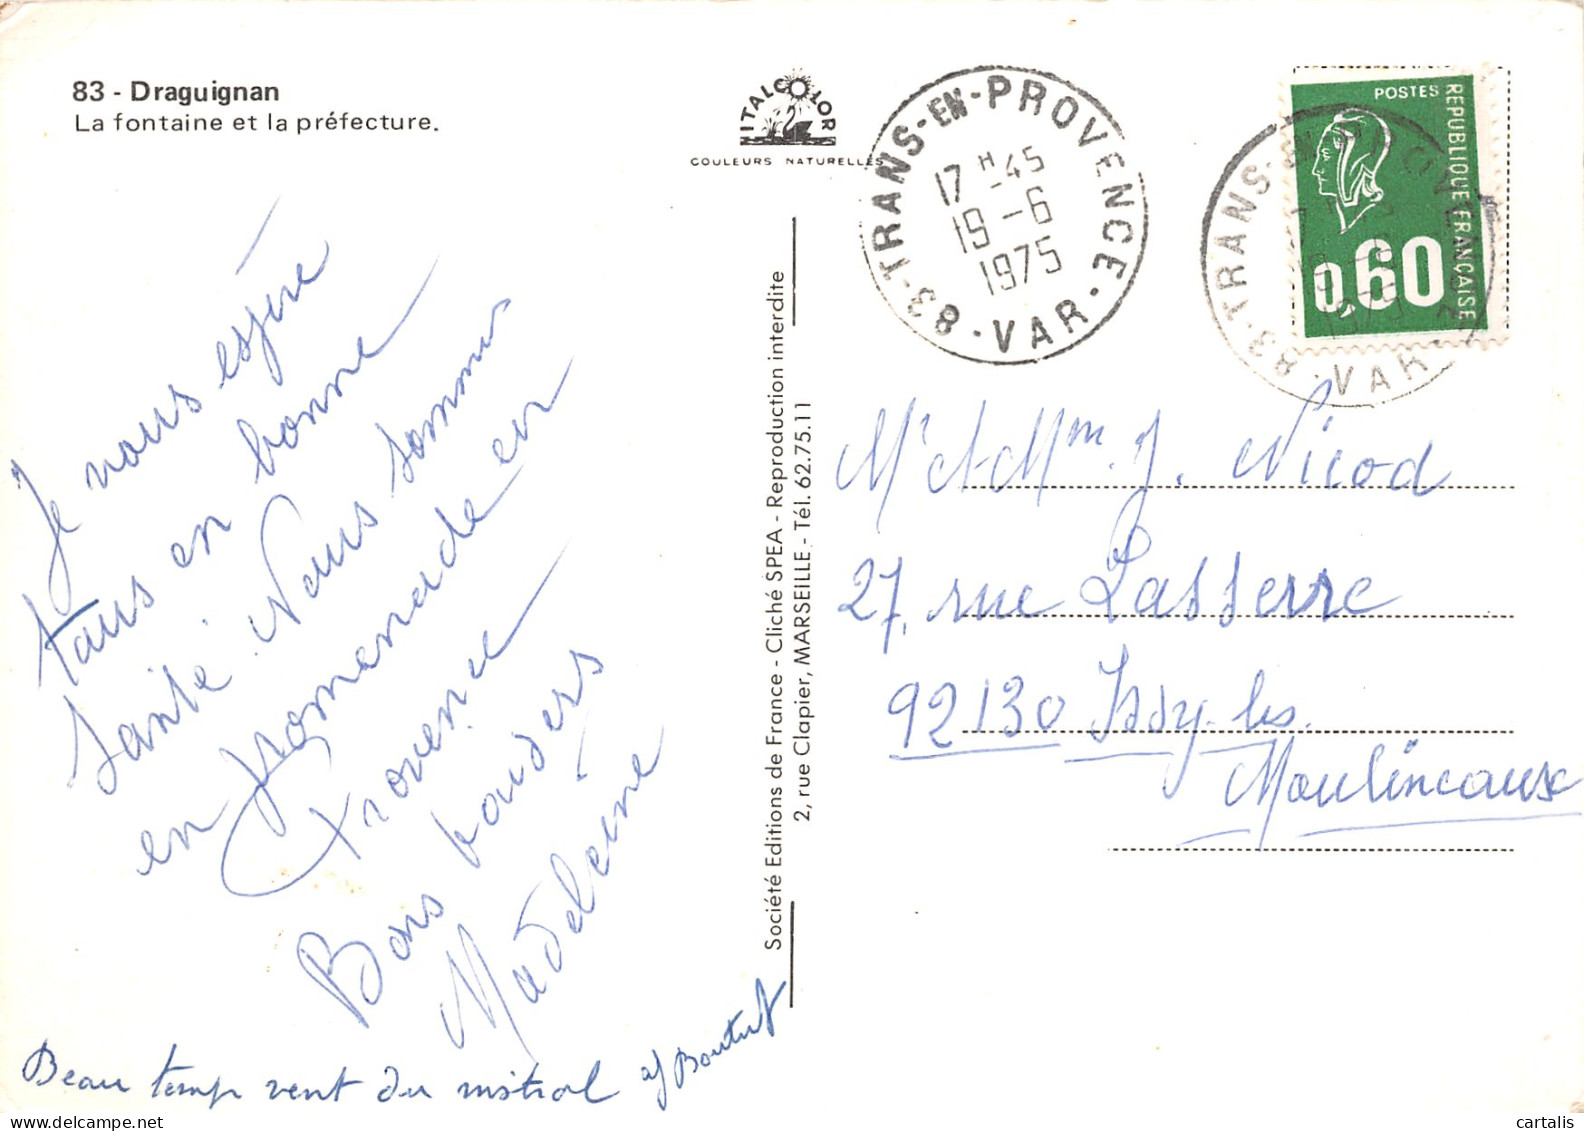 83 - Draguignan
La fontaine et la préfecture.
ITALCOLOR
COULEURS NATURELLES
83-TRANS-EN-PROVENCE-VAR
17 H -45
19 -6
1975
POSTES
REPUBLIQUE FRANÇAISE
0,60
83-TRANS-EN-PROVENCE-VAR
Je vous espère
tous en bonne
santé. Nous sommes
en promenade en
Provence
Bons baisers
Madeleine
Beau temp vent du mistral
Société Editions de France - Cliché SPEA - Reproduction interdite
2, rue Clapier, MARSEILLE - Tél. 62.75.11
Mr et Mme J. Nicod
27, rue Lasserre
92130 Issy-les
Moulineaux
cartalis